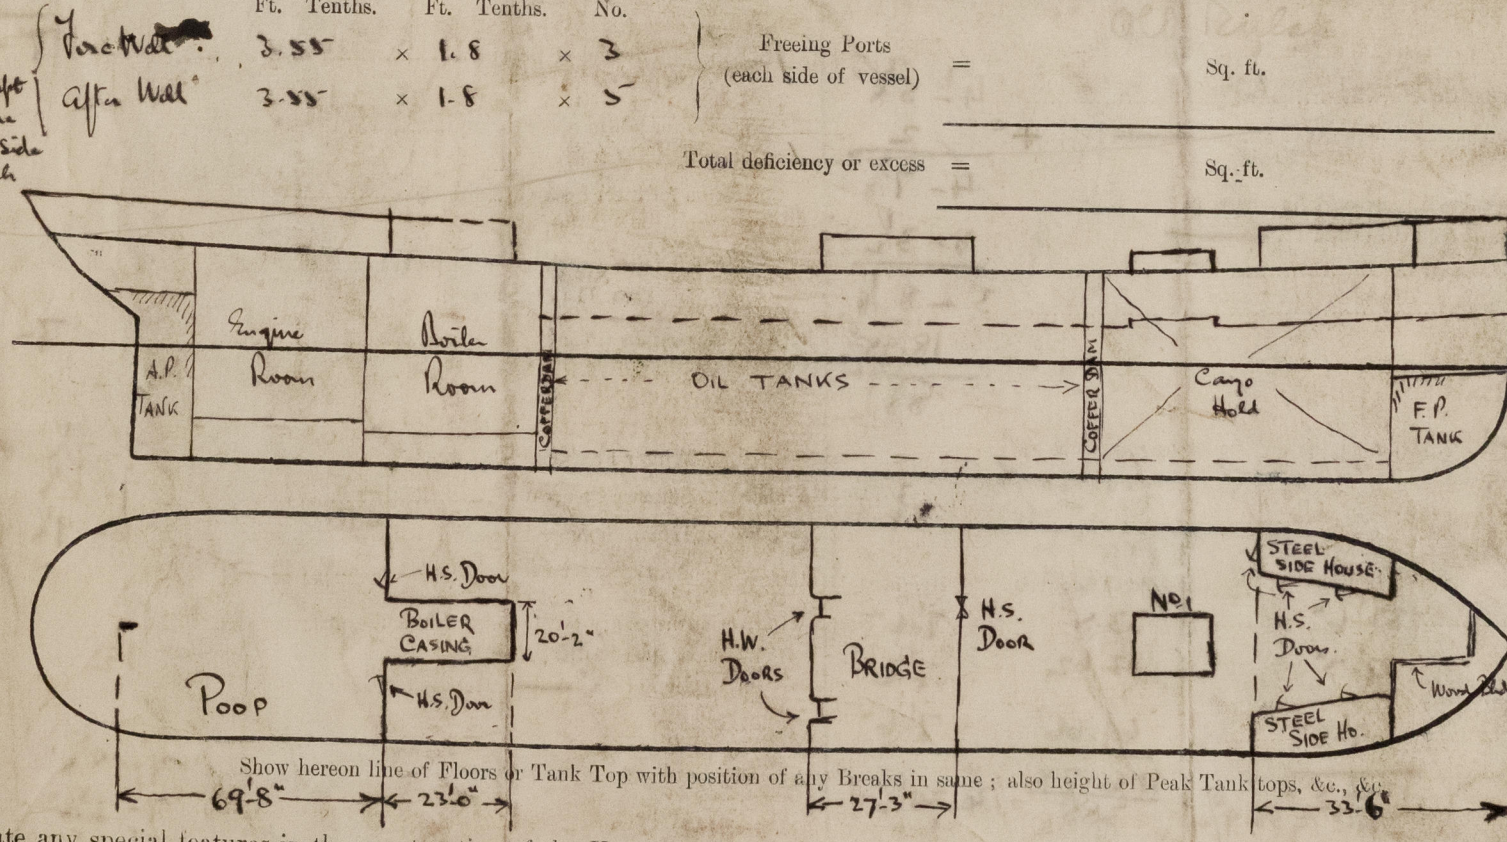 Ft. Tenths. Ft. Tenths. No.
Fore Well 3.55 × 1.8 × 3
After Well 3.55 × 1.8 × 5
Freeing Ports
(each side of vessel) = Sq. ft.
side
Total deficiency or excess = Sq. ft.
Engine
Room
Boiler
Room
A.P.
TANK
COFFERDAM
OIL TANKS
COFFER DAM
Cargo
Hold
F.P.
TANK
H.S. Door
BOILER
CASING
20'-2"
H.S. Door
POOP
H.W.
DOORS
BRIDGE
H.S.
DOOR
No.1
STEEL
SIDE HOUSE
H.S.
Doors.
STEEL
SIDE HO.
Wood
Show hereon line of Floors or Tank Top with position of any Breaks in same ; also height of Peak Tank tops, &c., &c.
69'-8" 23'-0" 27'-3" 33'-6"
any special features in the